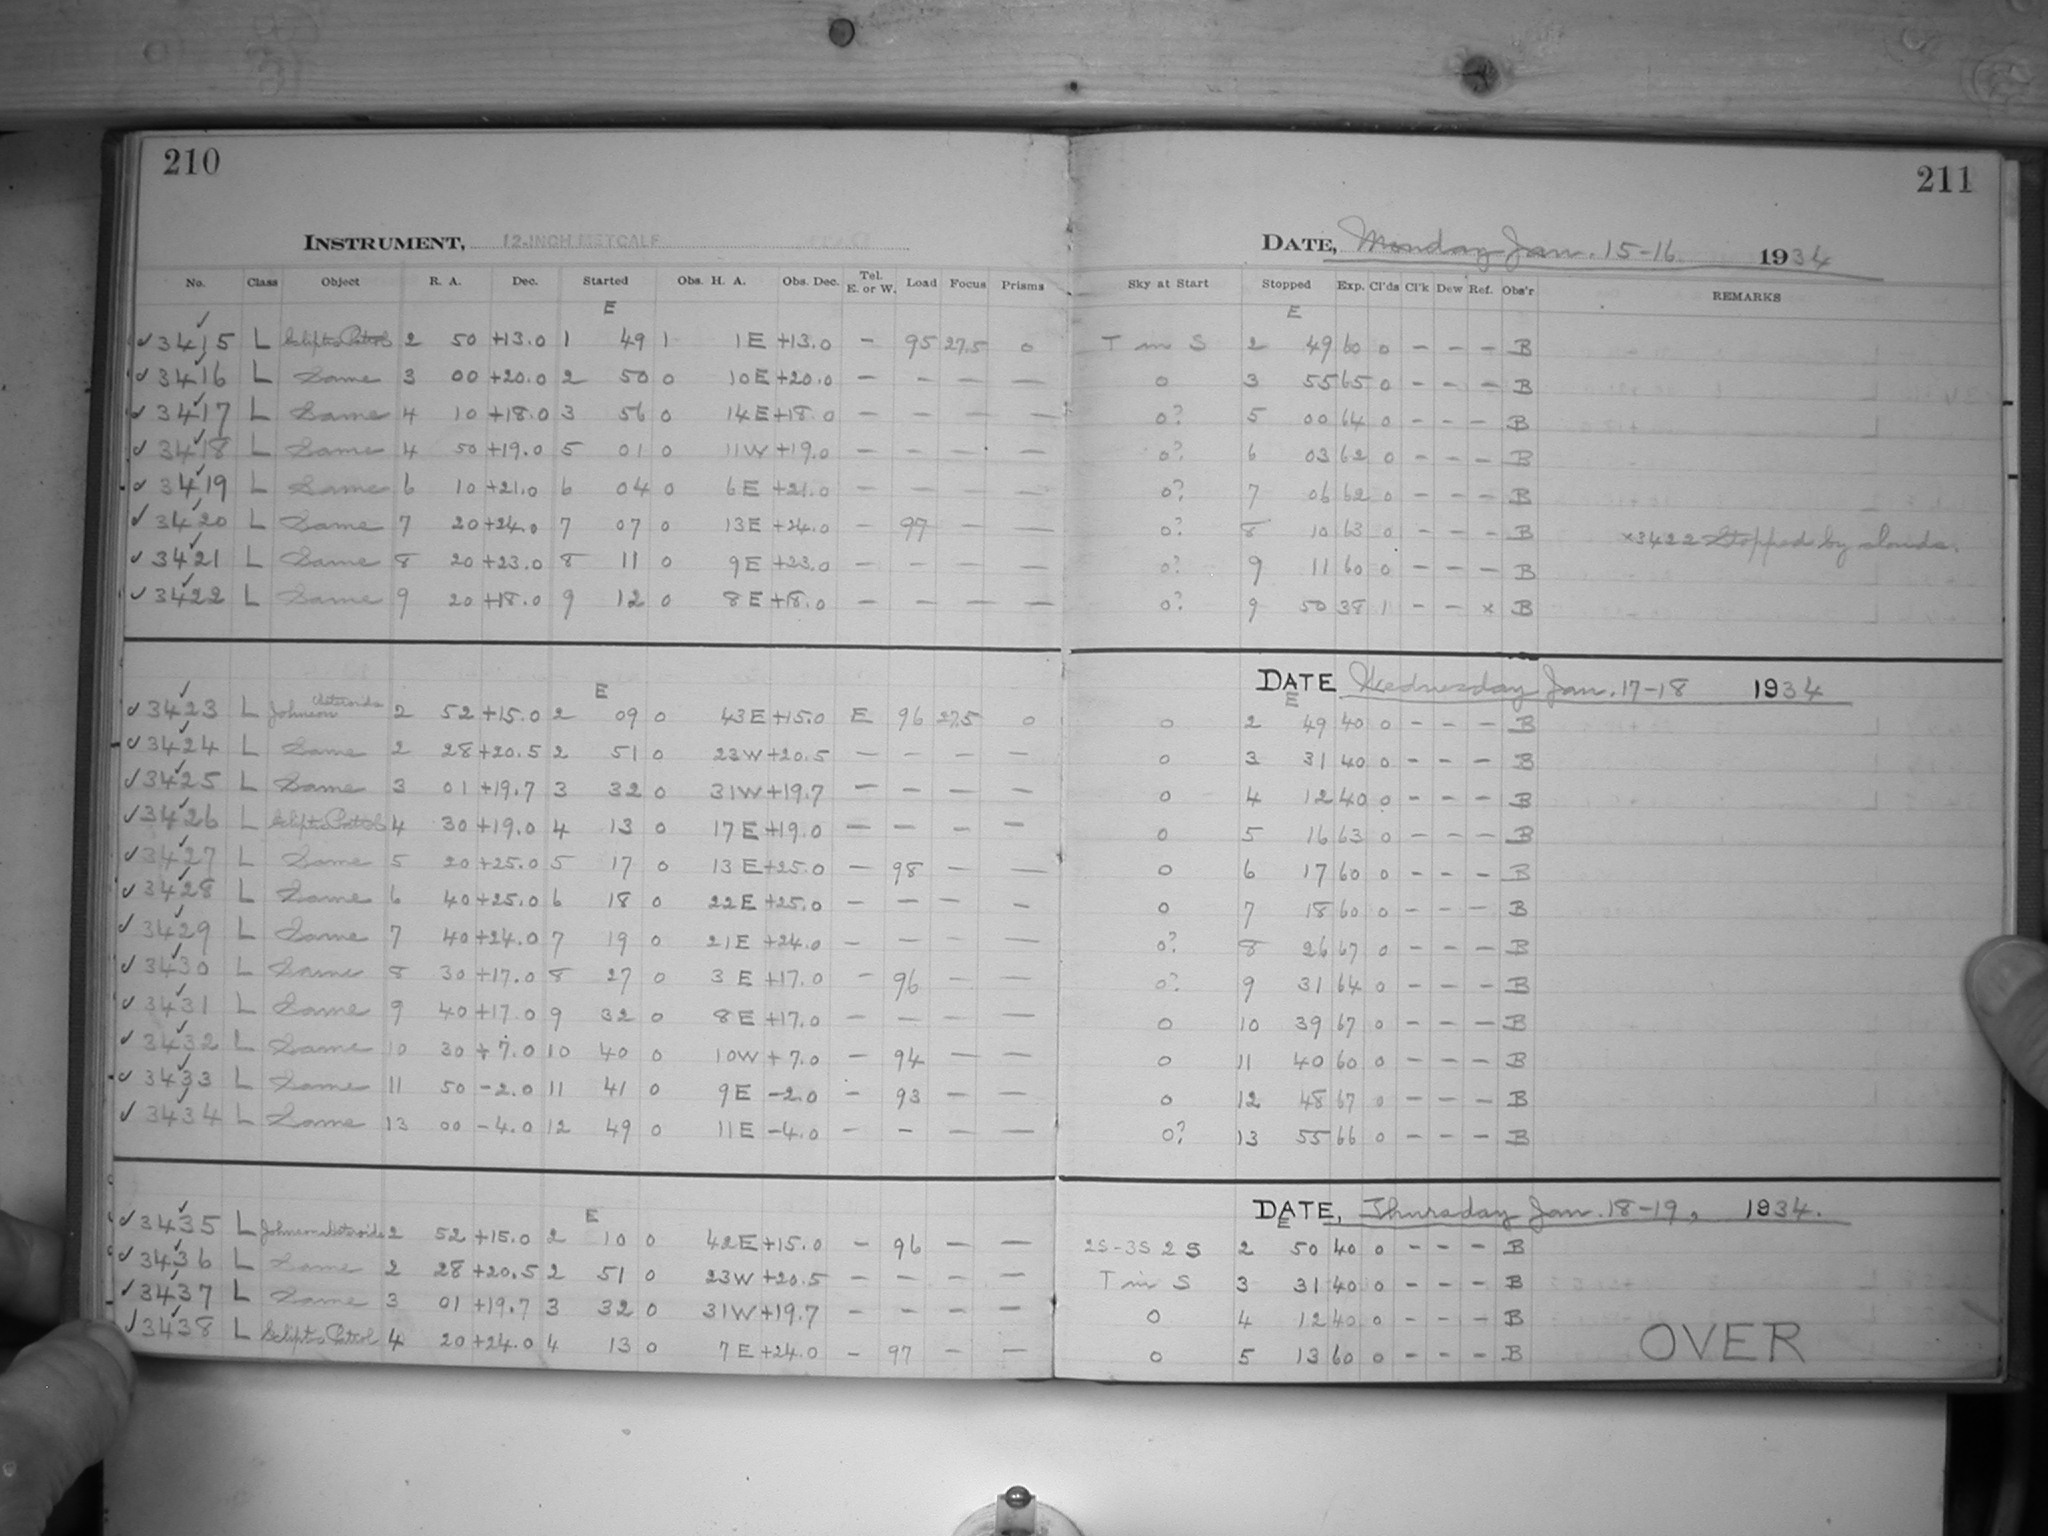 210
211
INSTRUMENT, 12-INCH METCALF
DATE, Monday Jan. 15-16 1934
No. Class Object R. A. Dec. Started Obs. H. A. Obs. Dec. Tel. E. or W. Load Focus Prisms Sky at Start Stopped Exp. Cl'ds Cl'k Dew Ref. Obs'r REMARKS
E E
✓3415 L Ecliptic Patrol 2 50 +13.0 1 49 1 1E +13.0 - 95 27.5 0 T in S 2 49 60 0 - - - B
✓3416 L Same 3 00 +20.0 2 50 0 10E +20.0 - - - - 0 3 55 65 0 - - - B
✓3417 L Same 4 10 +18.0 3 56 0 14E +18.0 - - - - 0? 5 00 64 0 - - - B
✓3418 L Same 4 50 +19.0 5 01 0 11W +19.0 - - - - 0? 6 03 62 0 - - - B
✓3419 L Same 6 10 +21.0 6 04 0 6E +21.0 - - - - 0? 7 06 62 0 - - - B
✓3420 L Same 7 20 +24.0 7 07 0 13E +24.0 - 97 - - 0? 8 10 63 0 - - - B x3422 Stopped by clouds.
✓3421 L Same 8 20 +23.0 8 11 0 9E +23.0 - - - - 0? 9 11 60 0 - - - B
✓3422 L Same 9 20 +18.0 9 12 0 8E +18.0 - - - - 0? 9 50 38 1 - - x B
DATE Wednesday Jan. 17-18 1934
E E
✓3423 L Johnson Asteroids 2 52 +15.0 2 09 0 43E +15.0 E 96 27.5 0 0 2 49 40 0 - - - B
✓3424 L Same 2 28 +20.5 2 51 0 23W +20.5 - - - - 0 3 31 40 0 - - - B
✓3425 L Same 3 01 +19.7 3 32 0 31W +19.7 - - - - 0 4 12 40 0 - - - B
✓3426 L Ecliptic Patrol 4 30 +19.0 4 13 0 17E +19.0 - - - - 0 5 16 63 0 - - - B
✓3427 L Same 5 20 +25.0 5 17 0 13E +25.0 - 98 - - 0 6 17 60 0 - - - B
✓3428 L Same 6 40 +25.0 6 18 0 22E +25.0 - - - - 0 7 18 60 0 - - - B
✓3429 L Same 7 40 +24.0 7 19 0 21E +24.0 - - - - 0? 8 26 67 0 - - - B
✓3430 L Same 8 30 +17.0 8 27 0 3E +17.0 - 96 - - 0? 9 31 64 0 - - - B
✓3431 L Same 9 40 +17.0 9 32 0 8E +17.0 - - - - 0 10 39 67 0 - - - B
✓3432 L Same 10 30 +7.0 10 40 0 10W +7.0 - 94 - - 0 11 40 60 0 - - - B
✓3433 L Same 11 50 -2.0 11 41 0 9E -2.0 - 93 - - 0 12 48 67 0 - - - B
✓3434 L Same 13 00 -4.0 12 49 0 11E -4.0 - - - - 0? 13 55 66 0 - - - B
DATE, Thursday Jan. 18-19, 1934.
E E
✓3435 L Johnson Asteroids 2 52 +15.0 2 10 0 42E +15.0 - 96 - - 2S-3S 2S 2 50 40 0 - - - B
✓3436 L Same 2 28 +20.5 2 51 0 23W +20.5 - - - - T in S 3 31 40 0 - - - B
✓3437 L Same 3 01 +19.7 3 32 0 31W +19.7 - - - - 0 4 12 40 0 - - - B
✓3438 L Ecliptic Patrol 4 20 +24.0 4 13 0 7E +24.0 - 97 - - 0 5 13 60 0 - - - B
OVER